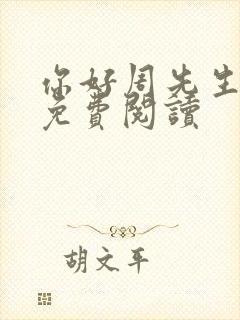 你好周先生
免費閱讀
胡文平